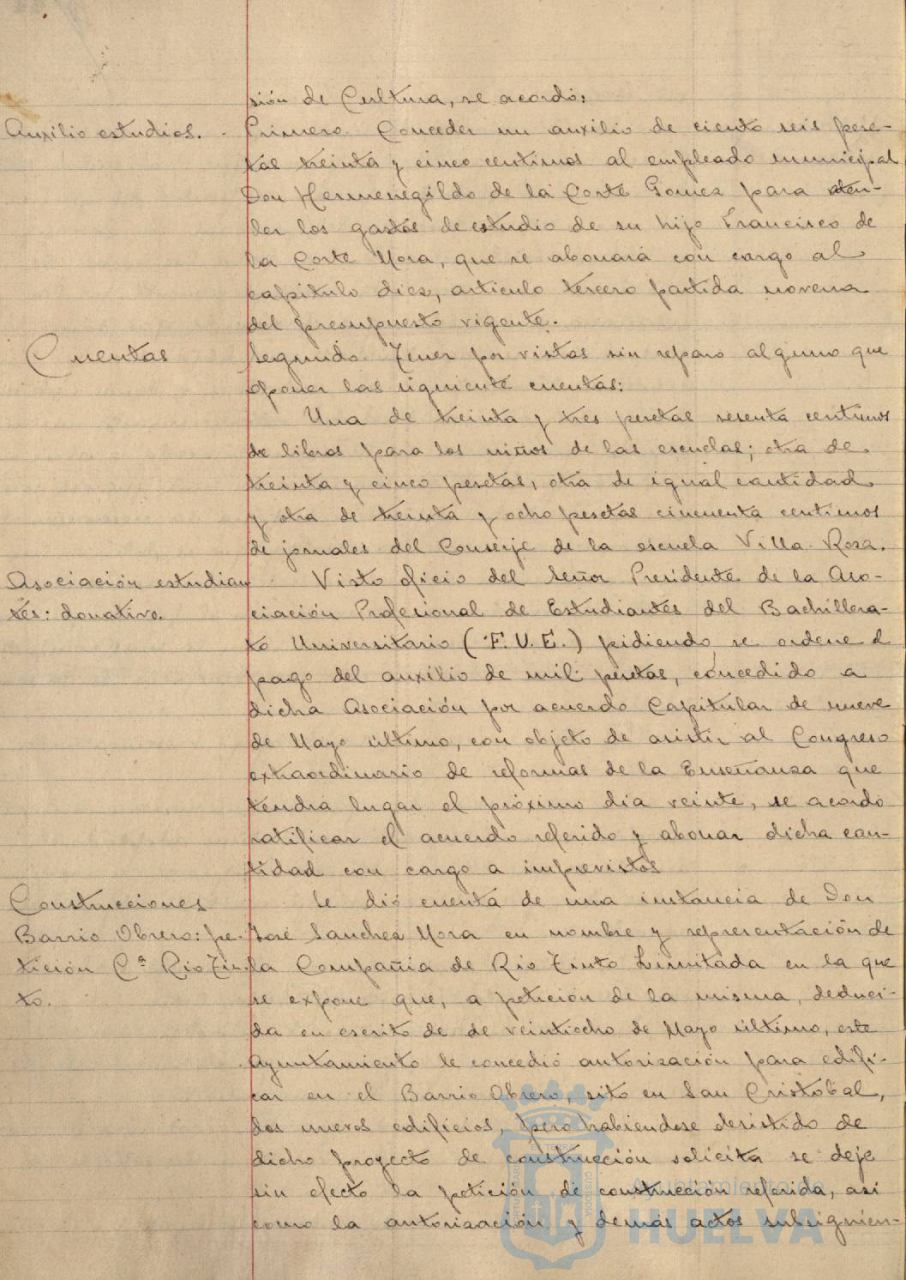 sión de Cultura, se acordó:
Auxilio estudios. - Primero. Conceder un auxilio de ciento seis pese-
tas treinta y cinco centimos al empleado municipal
Don Hermenegildo de la Corte Gomez para aten-
der los gastos de estudio de su hijo Francisco de
la Corte Mora, que se abonará con cargo al
capitulo diez, articulo tercero partida novena
del presupuesto vigente.
Cuentas Segundo. Tener por vistas sin reparo alguno que
oponer las siguiente cuentas:
Una de treinta y tres pesetas sesenta centimos
de libros para los niños de las escuelas; otra de
treinta y cinco pesetas, otra de igual cantidad
y otra de treinta y ocho pesetas cincuenta centimos
de jornales del Conserje de la escuela Villa Rosa.
Asociación estudian Visto oficio del Señor Presidente de la Aso-
tes: donativo. ciación Profesional de Estudiantes del Bachillera-
to Universitario (F.U.E.) pidiendo, se ordene el
pago del auxilio de mil pesetas, concedido a
dicha Asociación por acuerdo Capitular de nueve
de Mayo último, con objeto de asistir al Congreso
extraordinario de reformas de la Enseñanza que
tendrá lugar el próximo día veinte, se acordó
ratificar el acuerdo referido y abonar dicha can-
tidad con cargo a imprevistos
Construcciones Se dió cuenta de una instancia de Don
Barrio Obrero: pe- José Sanchez Mora en nombre y representación de
tición Cª Rio Tin- la Compañia de Rio Tinto Limitada en la que
to. se expone que, a petición de la misma, deduci-
da en escrito de de veintiocho de Mayo último, este
Ayuntamiento le concedió autorización para edifi-
car en el Barrio Obrero, sito en San Cristóbal,
dos nuevos edificios, pero habiendose desistido de
dicho proyecto de construcción solicita se deje
sin efecto la petición de construcción referida, asi
como la autorización y demás actos subsiguien-
Ayuntamiento de
HUELVA